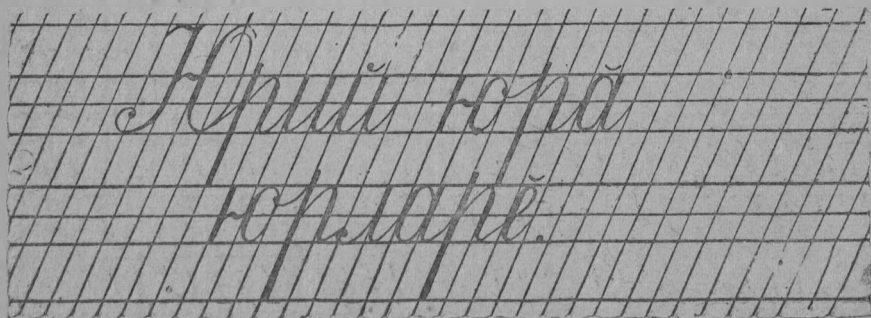 Юрий юрă
юрларĕ.